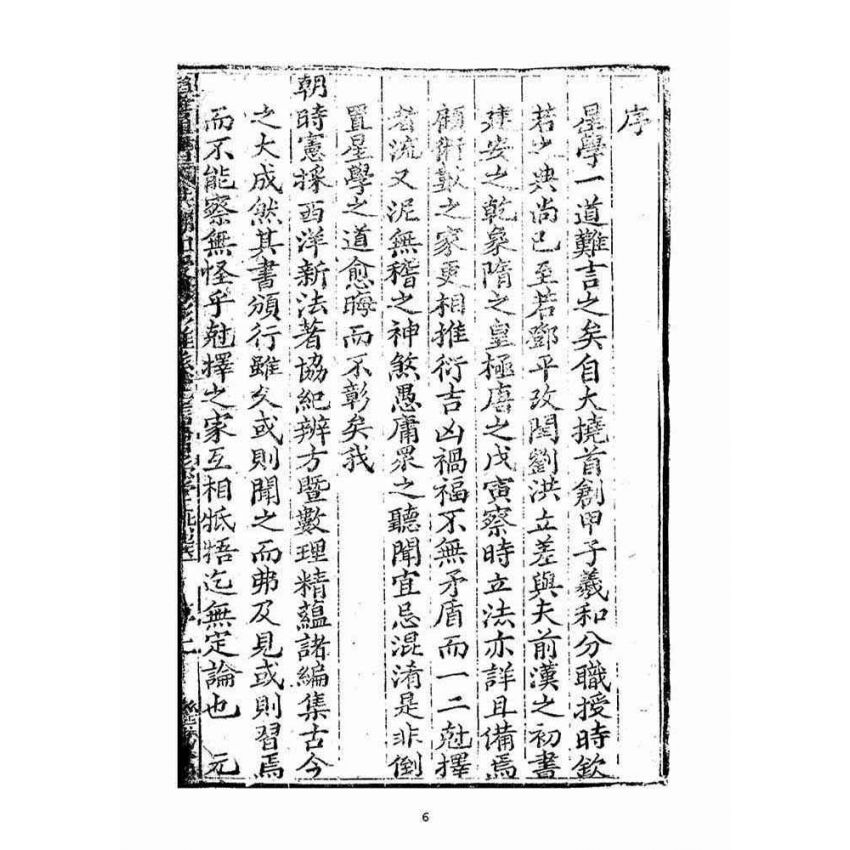 序
星學一道難言之矣自大撓首創甲子羲和分職授時欽
若之典尚已至若鄧平改閏劉洪立差與夫前漢之初書
建安之乾象隋之皇極唐之戊寅察時立法亦詳且備焉
顧術數之家更相推衍吉凶禍福不無矛盾而一二尅擇
者流又泥無稽之神煞愚庸眾之聽聞宜忌混淆是非倒
置星學之道愈晦而不彰矣我
朝時憲採西洋新法著協紀辨方暨數理精蘊諸編集古今
之大成然其書頒行雖久或則聞之而弗及見或則習焉
而不能察無怪乎尅擇之家互相牴牾迄無定論也 元
6